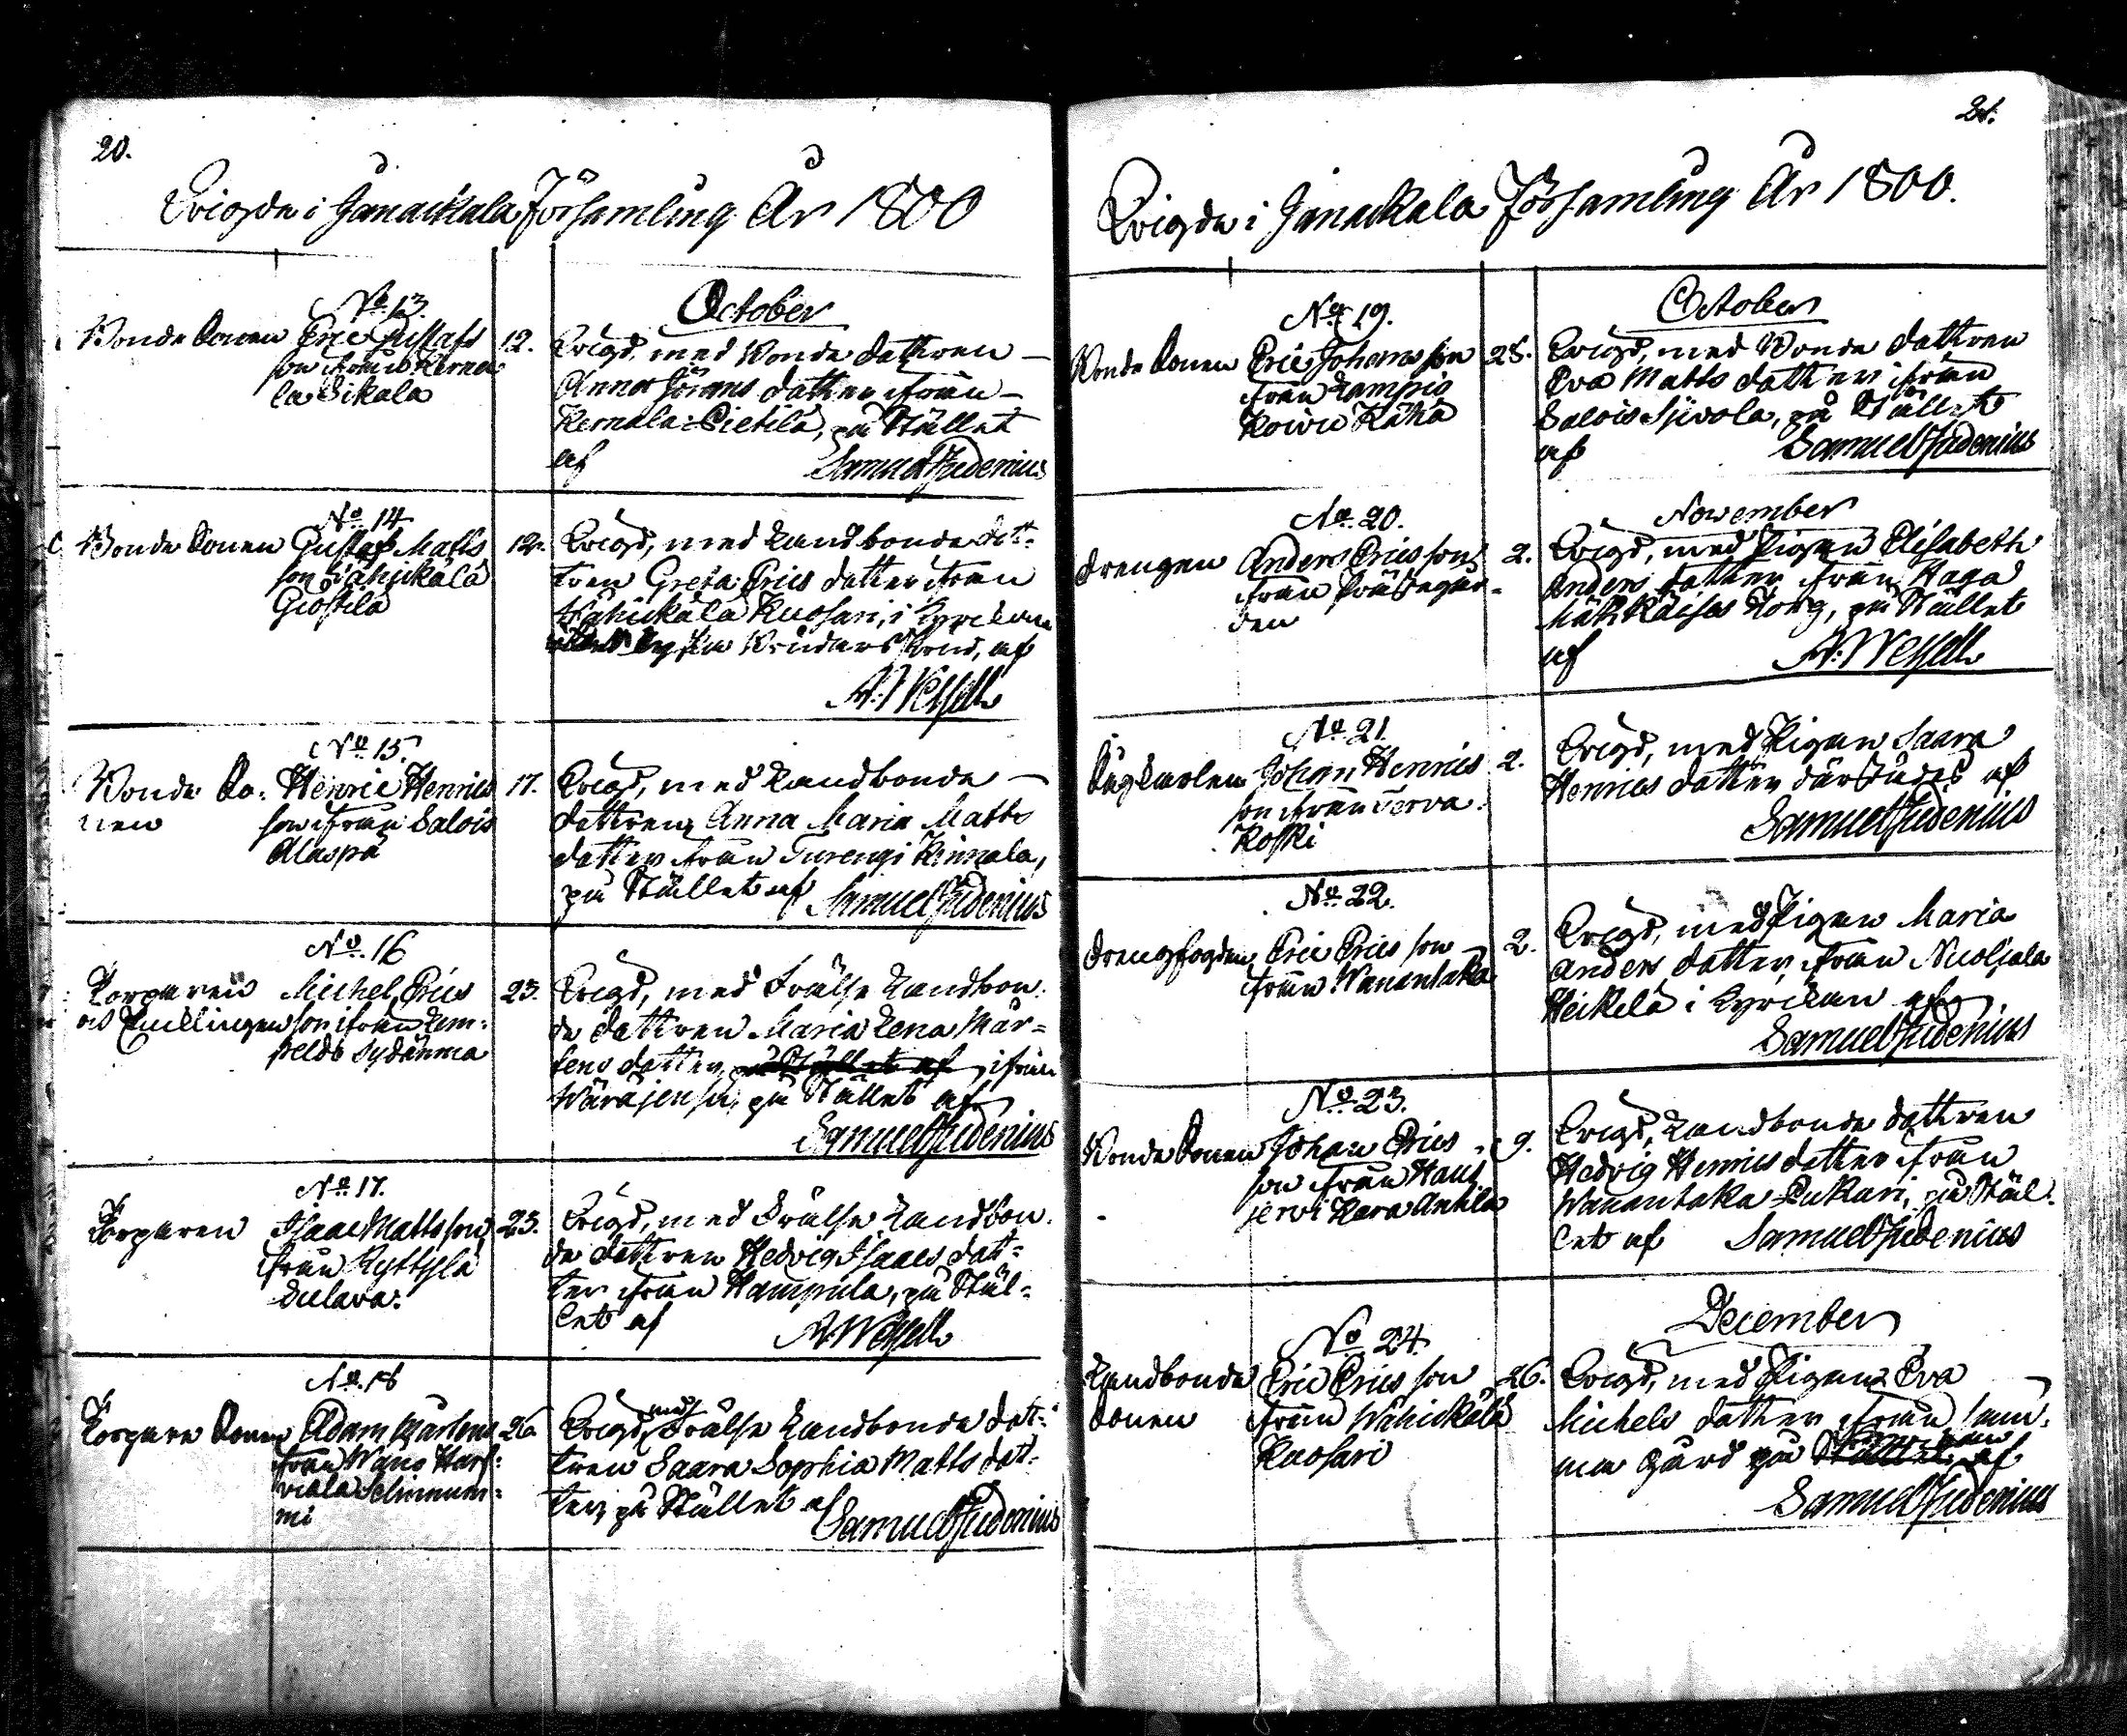 20.
Wigde i Janackala Församling År 1800
No 13.
October
Bonde Sonen Eric Gustafs
son ifrån Kerna
la Sikala
12.
Wigd, med Bonde dottren
Anna Jörans dotter ifrån
Kernala Pietilä, på Stället
af Samuel Judenius
No 14
Bonde Sonen Gustaf Matts
son Wähickälä
Giostilä
12.
Wigd, med Landbonde dot-
tren Greta Erics dotter ifrån
Wähickälä Kuosari, i Kyrckan
af
A. Wessell
No 15.
Bonde So-
nen
Henric Henrics
son ifrån Salois
Alaspä
17.
Wigd, med Landbonde
dottren Anna Maria Matts
dotter ifrån Turengi Hinnala,
på Stället af Samuel Judenius
No 16
Torparen
Michel Erics
son ifrån Lem-
pelds Sydänma
23.
Wigd, med Frälse Landbon-
de dottren Maria Lena Mår-
tens dotter, på Stället af ifrån
Wäräjensu, på Stället af
Samuel Judenius
No 17.
Torparen
Isaac Matts son
ifrån Ryttylä
23.
Wigd, med Frälse Landbon-
de dottren Hedvig Isaacs dot-
ter ifrån Hampula, på Stäl-
let af A. Wessell
No 18
Torpare Sonen Adam Mårtens
ifrån Wano Harf-
viala Selinnum-
mi
26.
Wigd, med Frälse Landbonde dot-
tren Saara Sophia Matts dot-
ter, på Stället af
Samuel Judenius
21.
Wigde i Janackala Församling År 1800.
No 19.
October
Bonde Sonen Eric Johans son
ifrån Lampis
Koivu Kähä
28.
Wigd, med Bonde dottren
Eva Matts dotter ifrån
Salois Syivola, på Stället
af Samuel Judenius
No 20.
November
Drengen Anders Erics son
ifrån Prästegår-
den
2.
Wigd, med Pigan Elisabeth
Anders dotter ifrån Haga
Mähkäises Torg, på Stället
af A. Wessell
No 21.
Johan Henrics
son ifrån Terva
Koski
2.
Wigd, med Pigan Saara
Henrics dotter därstädes af
Samuel Judenius
No 22.
Drengfogden Eric Erics son
ifrån Wanantaka
2.
Wigd, med Pigan Maria
Anders dotter, ifrån Nuoliala
Heikelä i Kyrckan af
Samuel Judenius
No 23.
Bonde Sonen Johan Erics
son ifrån Haus
jervi Kara Antila
9.
Wigd, Landbonde dottren
Hedvig Henrics dotter ifrån
Wanantaka Pukari, på Stäl-
let af Samuel Judenius
December
No 24.
Landbonde
Sonen
Eric Erics son
ifrån Wähickälä
Kuosari
26.
Wigd, med Pigan Eva
Michels dotter ifrån
gård på Stället af
Samuel Judenius